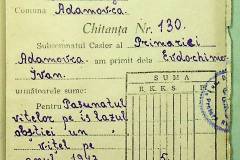 Comuna Adamovca.
Chitanța Nr. 130.
Subsemnatul Casier al Primăriei
Adamovca am primit dela Evdochimov
Ivan.
SUMA
următoarele sume:
R.K.K.S.
Pentru Pașunatul
vițelor pe islazul
obștiei un
vițel pe
anul 1942